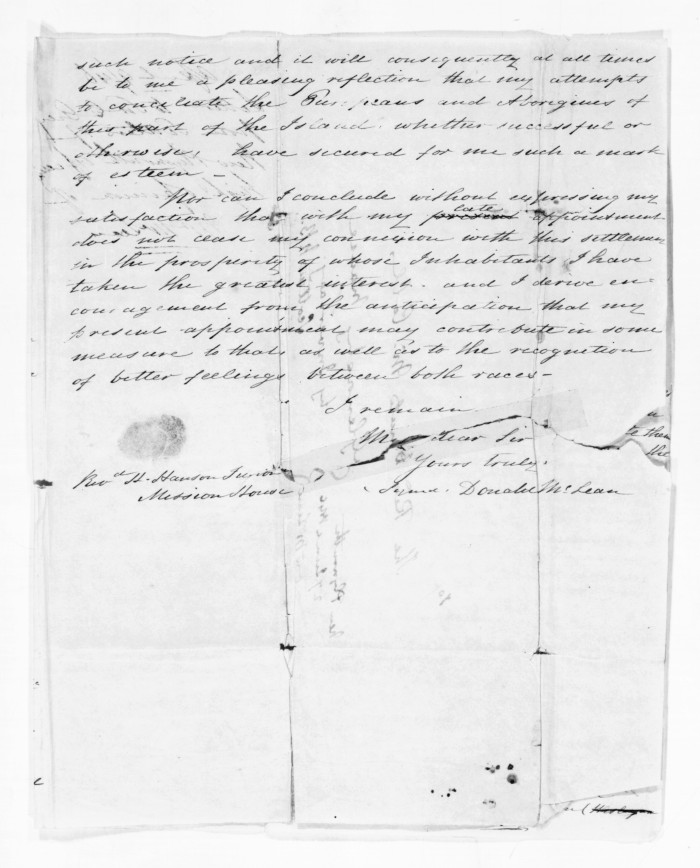 such notice and it will consequently at all times
be to me a pleasing reflection that my attempts
to conciliate the Europeans and Aborigines of
this part of the Island. whether successful or
otherwise, have secured for me such a mark
of esteem –
Nor can I conclude without expressing my
late
satisfaction that with my present appointment
does not cease my connexion with this settlement
in the prosperity of whose Inhabitants I have
taken the greatest interest. and I derive en-
couragement from the anticipation that my
present appointment may contribute in some
measure to that, as well as to the recognition
of better feelings between both races –
I remain
My dear Sir
Yours truly,
Signed. Donald McLean
Revd. H. Hanson Turton
Mission House
a
to them
the